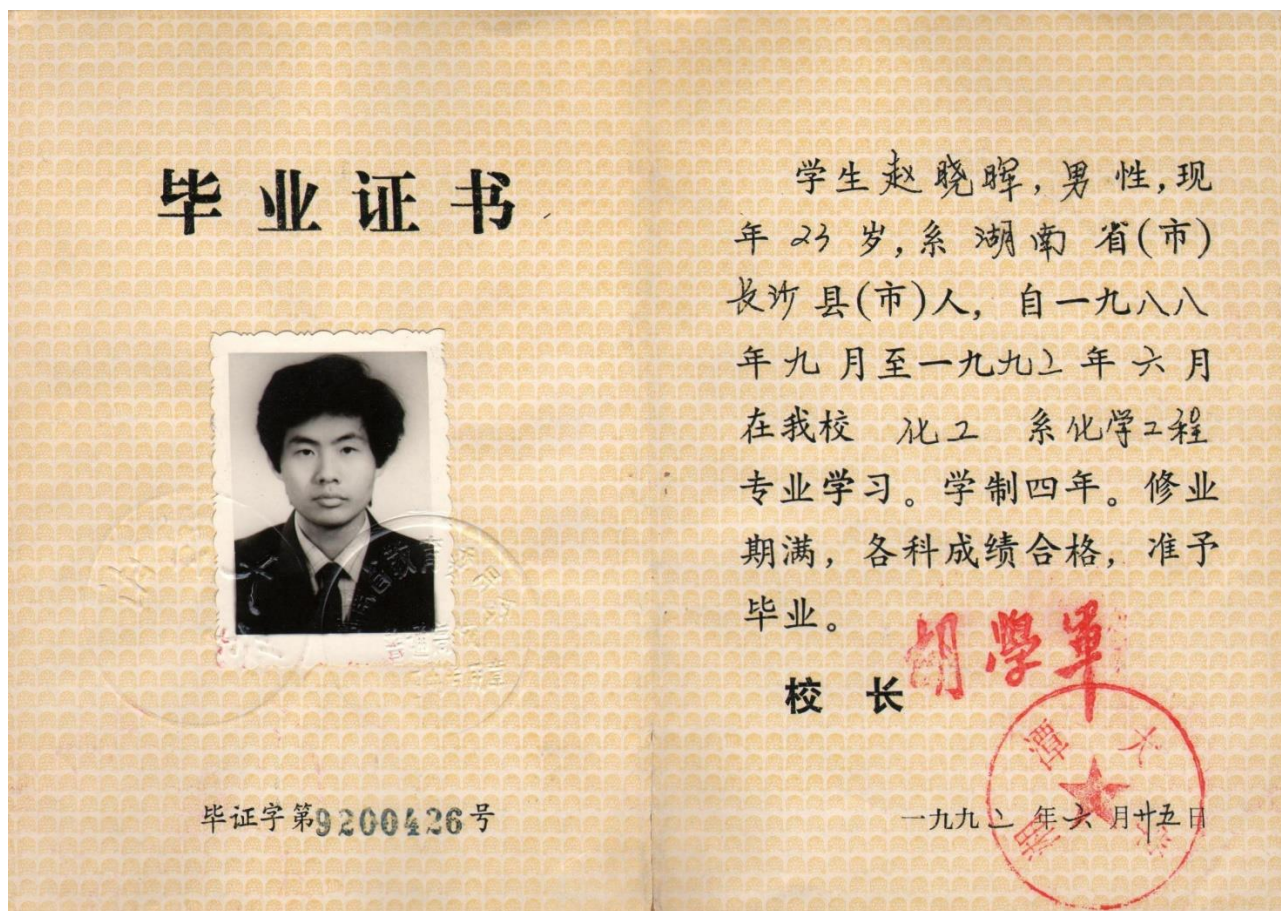 毕业证书
毕证字第9200426号
学生赵晓晖,男性,现
年23岁,系湖南省(市)
长沙县(市)人,自一九八八
年九月至一九九二年六月
在我校 化工 系化学工程
专业学习。学制四年。修业
期满,各科成绩合格,准予
毕业。
校长
湘潭大学
一九九二年六月廿五日